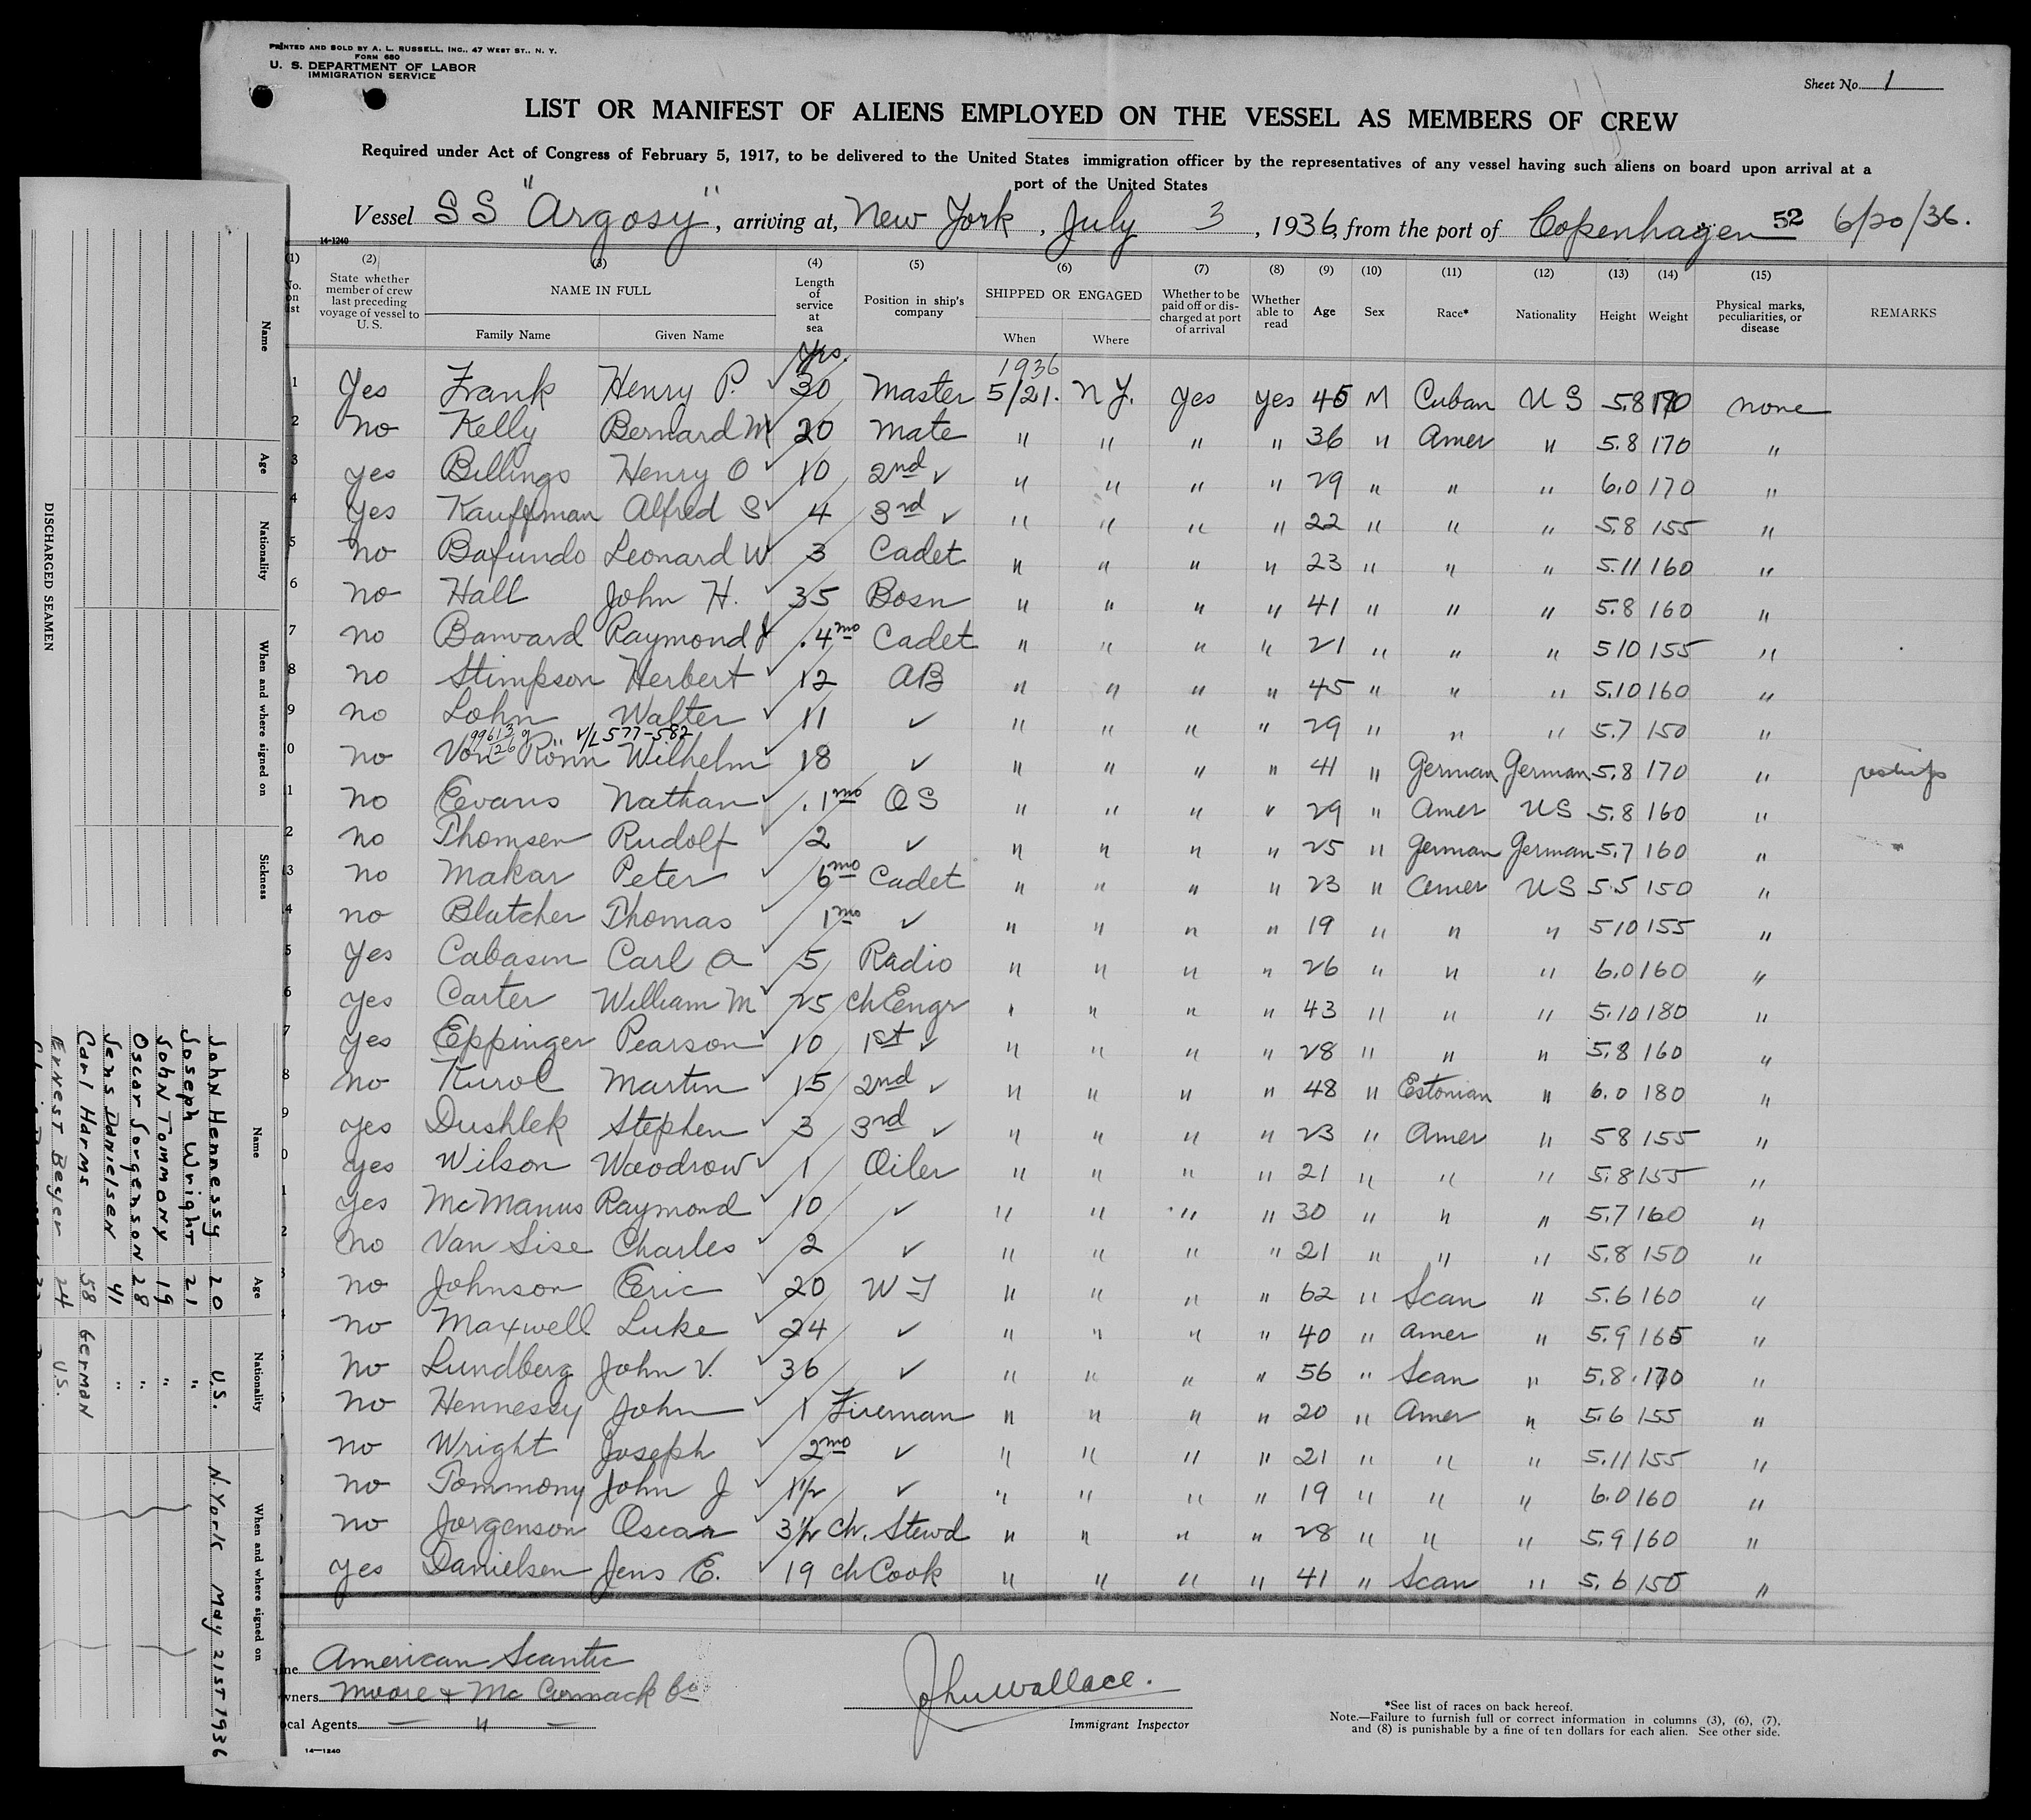 PRINTED AND SOLD BY A. L. RUSSELL, INC., 47 WEST ST., N. Y.
FORM 680
U. S. DEPARTMENT OF LABOR
IMMIGRATION SERVICE
Sheet No. 1
LIST OR MANIFEST OF ALIENS EMPLOYED ON THE VESSEL AS MEMBERS OF CREW
Required under Act of Congress of February 5, 1917, to be delivered to the United States immigration officer by the representatives of any vessel having such aliens on board upon arrival at a
port of the United States
Vessel SS "Argosy", arriving at, New York, July 3, 1936, from the port of Copenhagen 52 6/20/36.
14-1240
(1) (2) (3) (4) (5) (6) (7) (8) (9) (10) (11) (12) (13) (14) (15)
No. on list State whether member of crew last preceding voyage of vessel to U. S. NAME IN FULL Family Name Given Name Length of service at sea Position in ship's company SHIPPED OR ENGAGED When Where Whether to be paid off or discharged at port of arrival Whether able to read Age Sex Race* Nationality Height Weight Physical marks, peculiarities, or disease REMARKS
Yrs. 1936
1 Yes Frank Henry P. ✓ 30 Master 5/21. N Y. Yes Yes 45 M Cuban U S 5.8 170 none
2 No Kelly Bernard M ✓ 20 Mate " " " " 36 " Amer " 5.8 170 "
3 Yes Billings Henry O ✓ 10 2nd ✓ " " " " 29 " " " 6.0 170 "
4 Yes Kauffman Alfred S ✓ 4 3rd ✓ " " " " 22 " " " 5.8 155 "
5 No Bafundo Leonard W ✓ 3 Cadet " " " " 23 " " " 5.11 160 "
6 No Hall John H. ✓ 35 Bosn " " " " 41 " " " 5.8 160 "
7 No Banvard Raymond J ✓ .4 mo Cadet " " " " 21 " " " 510 155 "
8 No Stimpson Herbert ✓ 12 AB " " " " 45 " " " 5.10 160 "
9 No Lohn Walter ✓ 11 ✓ " " " " 29 " " " 5.7 150 "
V/L 577-582
0 No Von Rönn Wilhelm ✓ 18 ✓ " " " " 41 " German German 5.8 170 "
1 No Evans Nathan ✓ .1 mo OS " " " " 29 " Amer US 5.8 160 "
2 No Thomsen Rudolf ✓ 2 ✓ " " " " 25 " German German 5.7 160 "
13 No Makar Peter ✓ 6 mo Cadet " " " " 23 " Amer US 5.5 150 "
4 No Blatcher Thomas ✓ 1 mo ✓ " " " " 19 " " " 510 155 "
5 Yes Cabasin Carl A ✓ 5 Radio " " " " 26 " " " 6.0 160 "
6 Yes Carter William M ✓ 25 Ch Engr " " " " 43 " " " 5.10 180 "
7 Yes Eppinger Pearson ✓ 10 1st ✓ " " " " 28 " " " 5.8 160 "
8 No Kurol Martin ✓ 15 2nd ✓ " " " " 48 " Estonian " 6.0 180 "
9 Yes Dushlek Stephen ✓ 3 3rd ✓ " " " " 23 " Amer " 58 155 "
0 Yes Wilson Woodrow ✓ 1 Oiler " " " " 21 " " " 5.8 155 "
1 Yes McManus Raymond ✓ 10 ✓ " " " " 30 " " " 5.7 160 "
2 No Van Sise Charles ✓ 2 ✓ " " " " 21 " " " 5.8 150 "
No Johnson Eric ✓ 20 W T " " " " 62 " Scan " 5.6 160 "
No Maxwell Luke ✓ 24 ✓ " " " " 40 " Amer " 5.9 165 "
No Lundberg John V. ✓ 36 ✓ " " " " 56 " Scan " 5.8 170 "
No Hennessy John ✓ 1 Fireman " " " " 20 " Amer " 5.6 155 "
No Wright Joseph ✓ 2 mo ✓ " " " " 21 " " " 5.11 155 "
No Tommony John J ✓ 1 1/2 ✓ " " " " 19 " " " 6.0 160 "
No Jorgenson Oscar ✓ 3 1/2 Ch. Stewd " " " " 28 " " " 5.9 160 "
Yes Danielsen Jens E. ✓ 19 Ch Cook " " " " 41 " Scan " 5.6 150 "
American Scantic
wners Moore & McCormack Co
cal Agents — " —
14—1240
John Wallace.
Immigrant Inspector
*See list of races on back hereof.
Note.—Failure to furnish full or correct information in columns (3), (6), (7),
and (8) is punishable by a fine of ten dollars for each alien. See other side.
DISCHARGED SEAMEN
Name Age Nationality When and where signed on Sickness
Name Age Nationality When and where signed on
John Hennessy 20 U.S. N. York May 21st 1936
Joseph Wright 21 "
John Tommony 19 "
Oscar Jorgenson 28 "
Jens Danielsen 41 "
Carl Harms 58 German
Ernest Beyer 24 U.S.